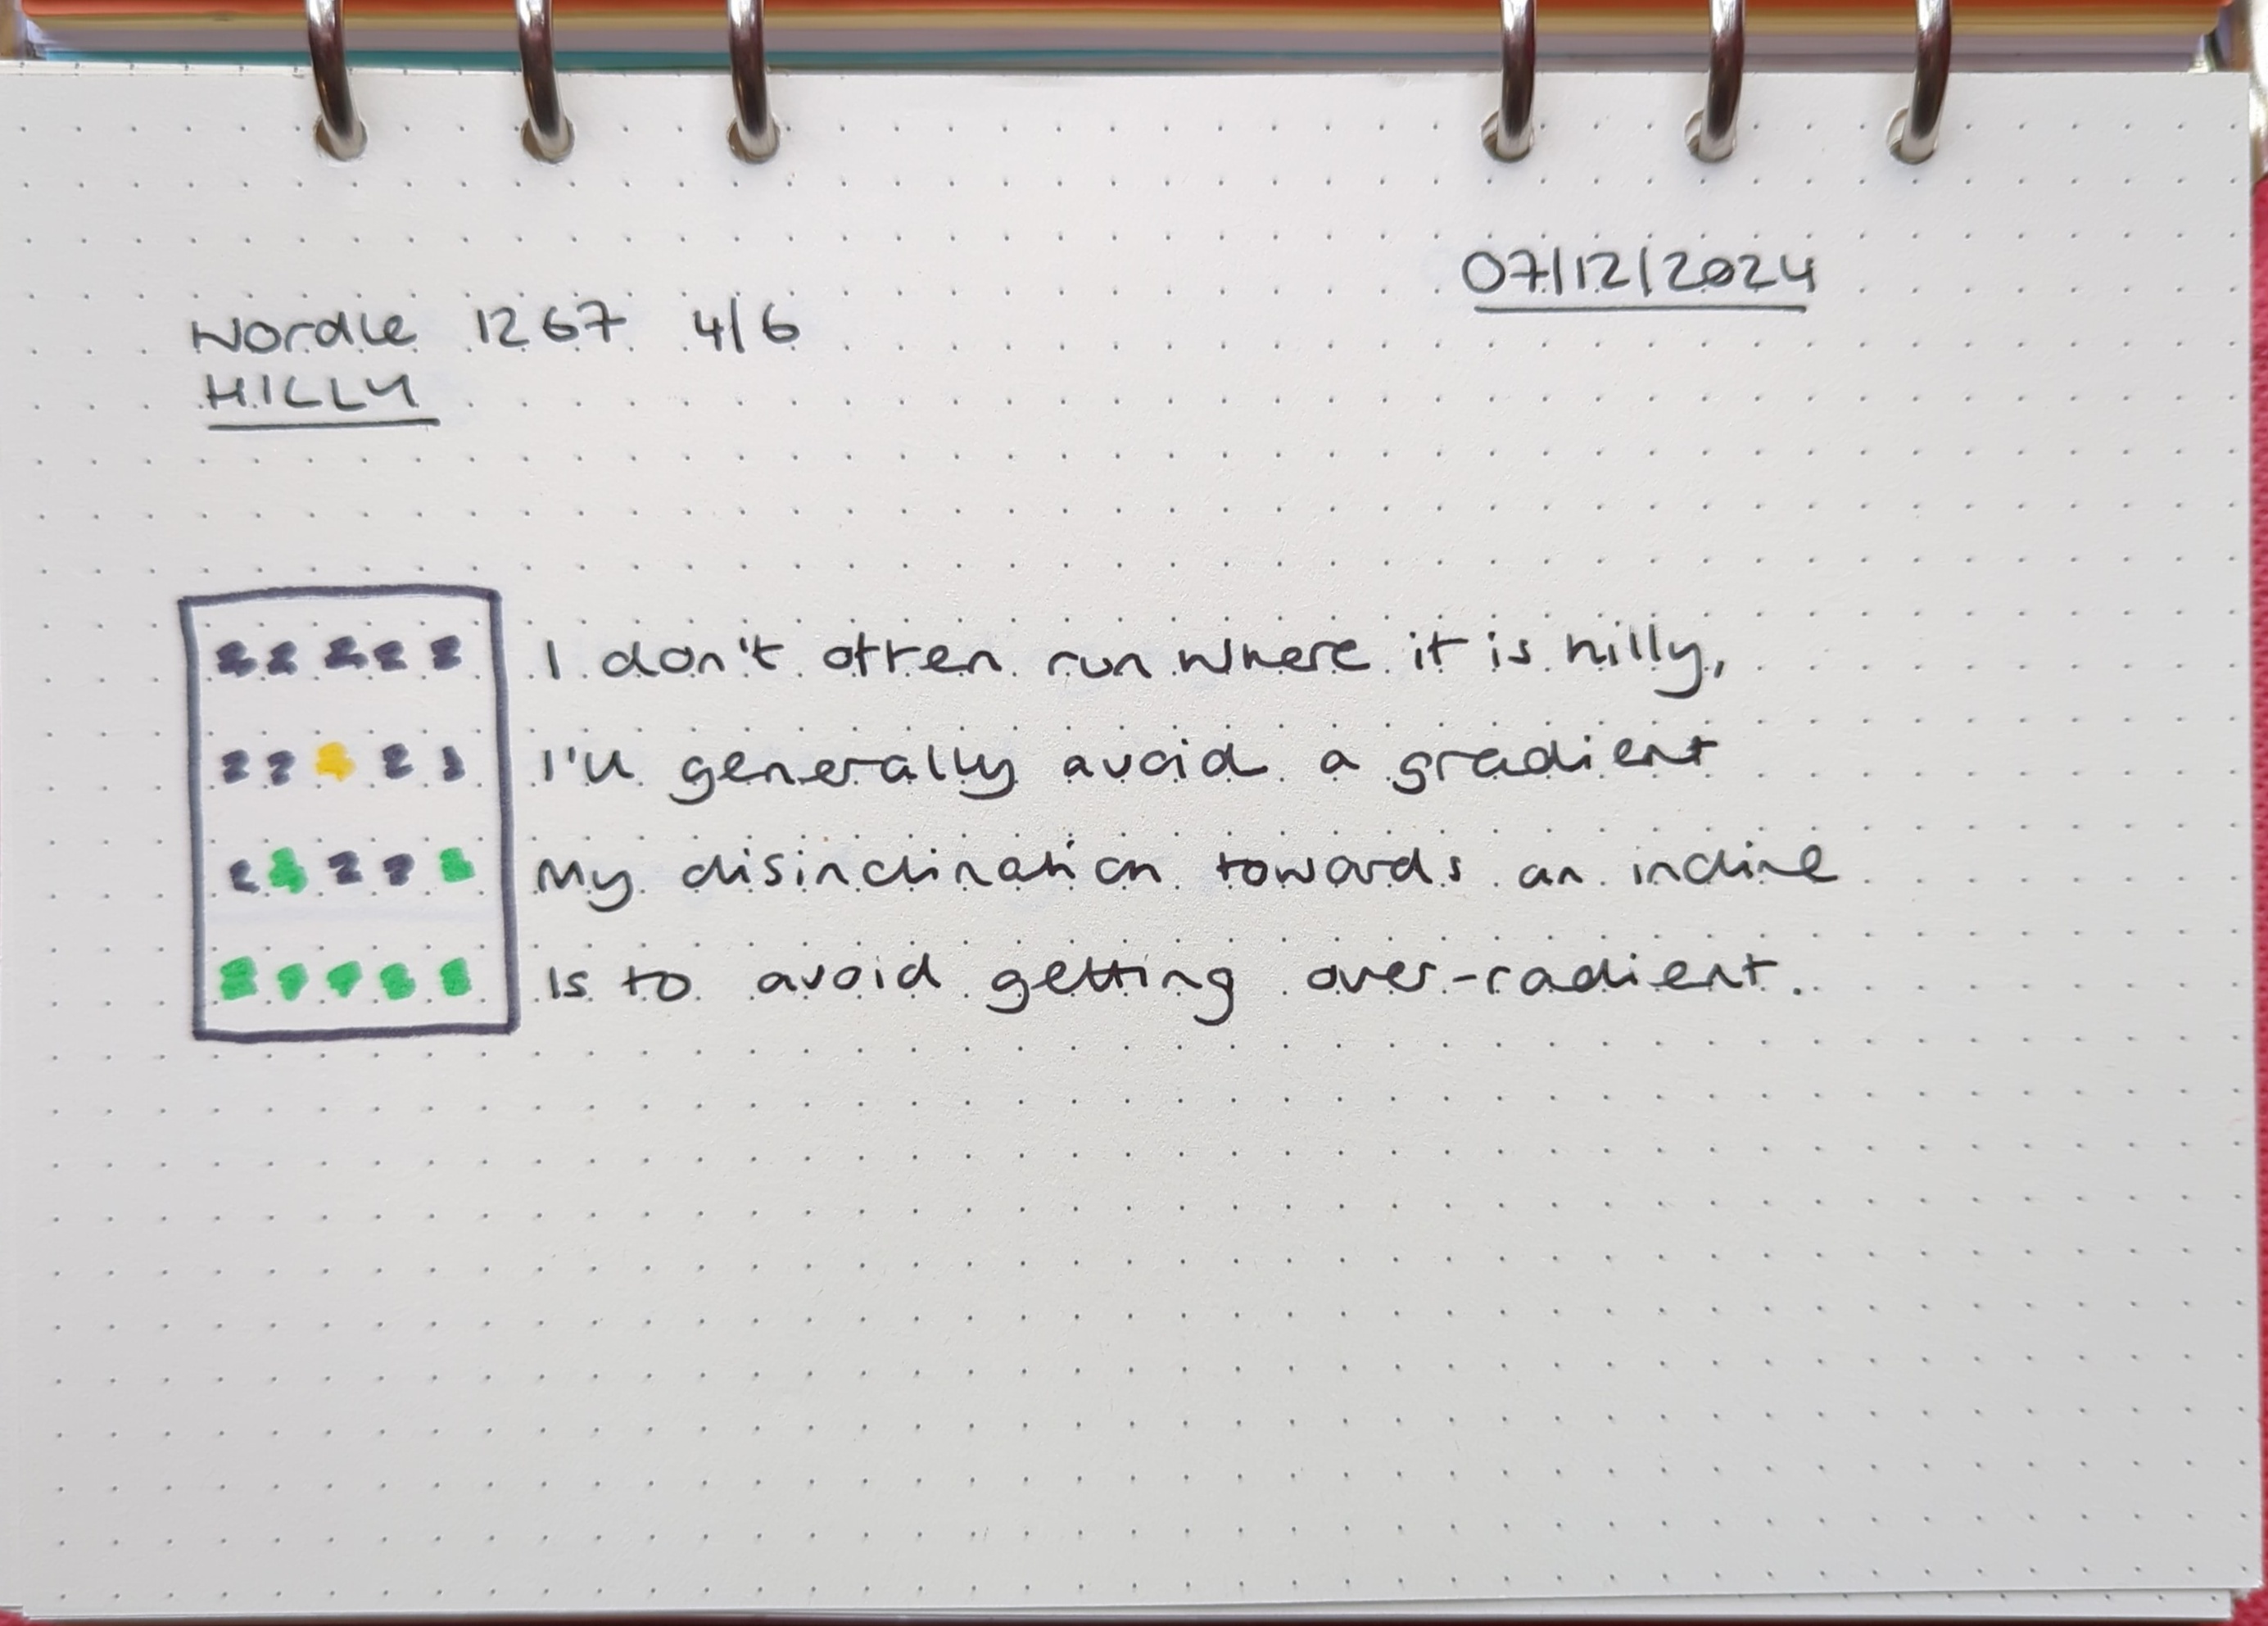 07/12/2024
Wordle 1267 4/6
HILLY
I don't often run where it is hilly,
I'll generally avoid a gradient
My disinclination towards an incline
Is to avoid getting over-radient.